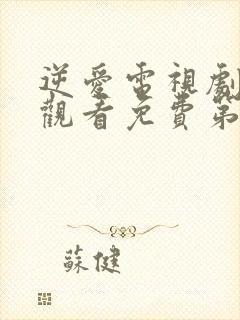 逆愛電視劇
觀看免費第
蘇健